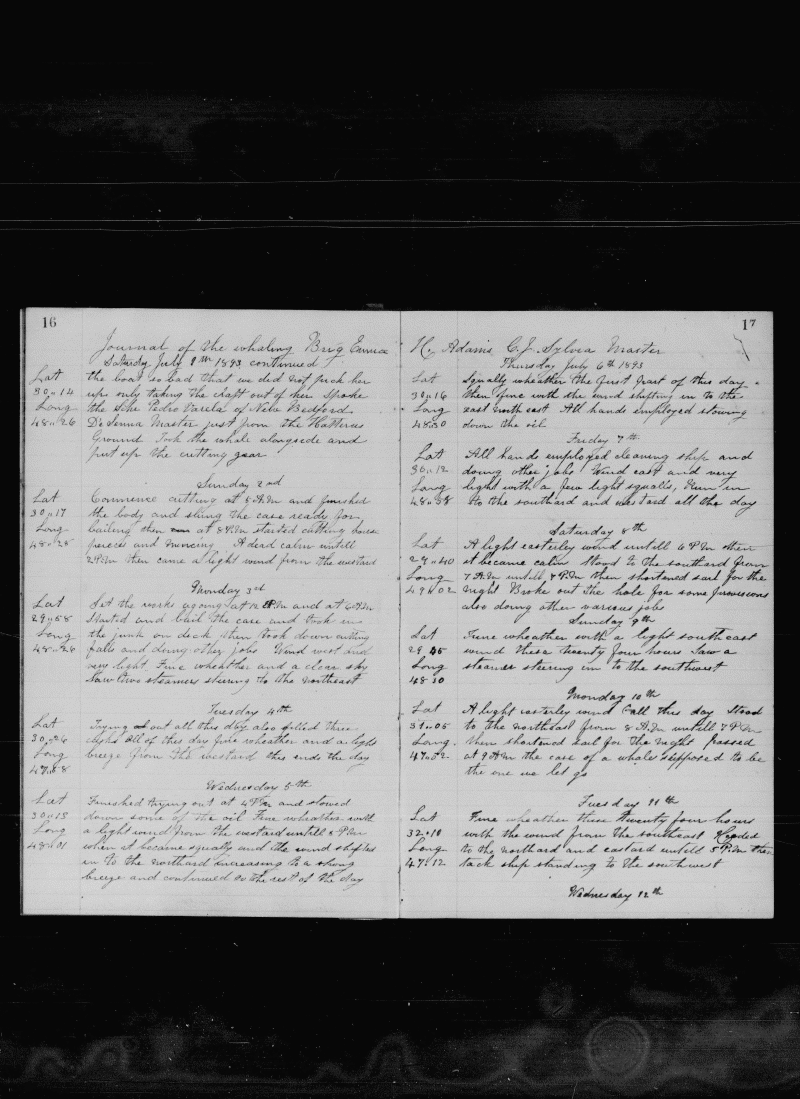 16
Journal of the whaling Brig Eunice
Saturday July 1st 1893 continued
Lat the boat so bad that we did not pick her
30.. 14 up only taking the craft out of her Spoke
Long the Schr Pedro Varela of New Bedford
48.. 26 De Senna Master just from the Hatteras
Ground Took the whale alongside and
put up the cutting gear
Sunday 2nd
Lat Commence cutting at 5 A.M and finished
30.. 17 the body and slung the case ready for
Long bailing then at 8 P.M started cutting horse
48.. 28 peices and mincing A dead calm untill
2 P.M then came a light wind from the westard
Monday 3rd
Lat Set the works agoing at 12 P.M and at 6 A.M
29.. 58 started and bail the case and took in
Long the junk on deck then took down cutting
48.. 26 falls and doing other jobs Wind west and
very light Fine wheather and a clear sky
Saw two steamers steering to the northeast
Tuesday 4th
Lat Trying out all this day also filled three
30.. 26 casks All of this day fine wheather and a light
Long breeze from the westard this ends the day
47.. 58
Wednesday 5th
Lat Finished trying out at 4 P.M and stowed
30.. 18 down some of the oil Fine wheather with
Long a light wind from the westard untill 8 P.M
48.. 01 when it became squally and the wind shifted
in to the northard increasing to a strong
breeze and continued so the rest of the day
17
H. Adams C. J. Sylvia Master
Thursday July 6th 1893
Lat Squally wheather the first part of this day
30.. 16 then fine with the wind shifting in to the
Long east north east All hands employed stowing
48.. 30 down the oil
Friday 7th
Lat All hands employed cleaning ship and
30.. 12 doing other jobs Wind east and very
Long light with a few light squalls, Run in
48.. 58 to the southard and westard all the day
Saturday 8th
Lat A light easterley wind untill 6 P.M then
29.. 40 it became calm Stood to the southard from
Long 7 A.M untill 7 P.M then shortened sail for the
49.. 02 night Broke out the hole for some provisions
also doing other various jobs
Sunday 9th
Lat Fine wheather with a light southeast
29 45 wind these twenty four hours Saw a
Long steamer steering in to the southwest
48 30
Monday 10th
Lat A light easterley wind all this day Stood
31.. 05 to the northeast from 8 A.M untill 7 P.M
Long then shortened sail for the night Passed
47.. 52 at 9 A.M the case of a whale supposed to be
the one we let go
Tuesday 11th
Lat Fine wheather these twenty four hours
32.. 10 with the wind from the southeast Headed
Long to the northard and eastard untill 5 P.M then
47.. 12 tack ship standing to the southwest
Wednesday 12th